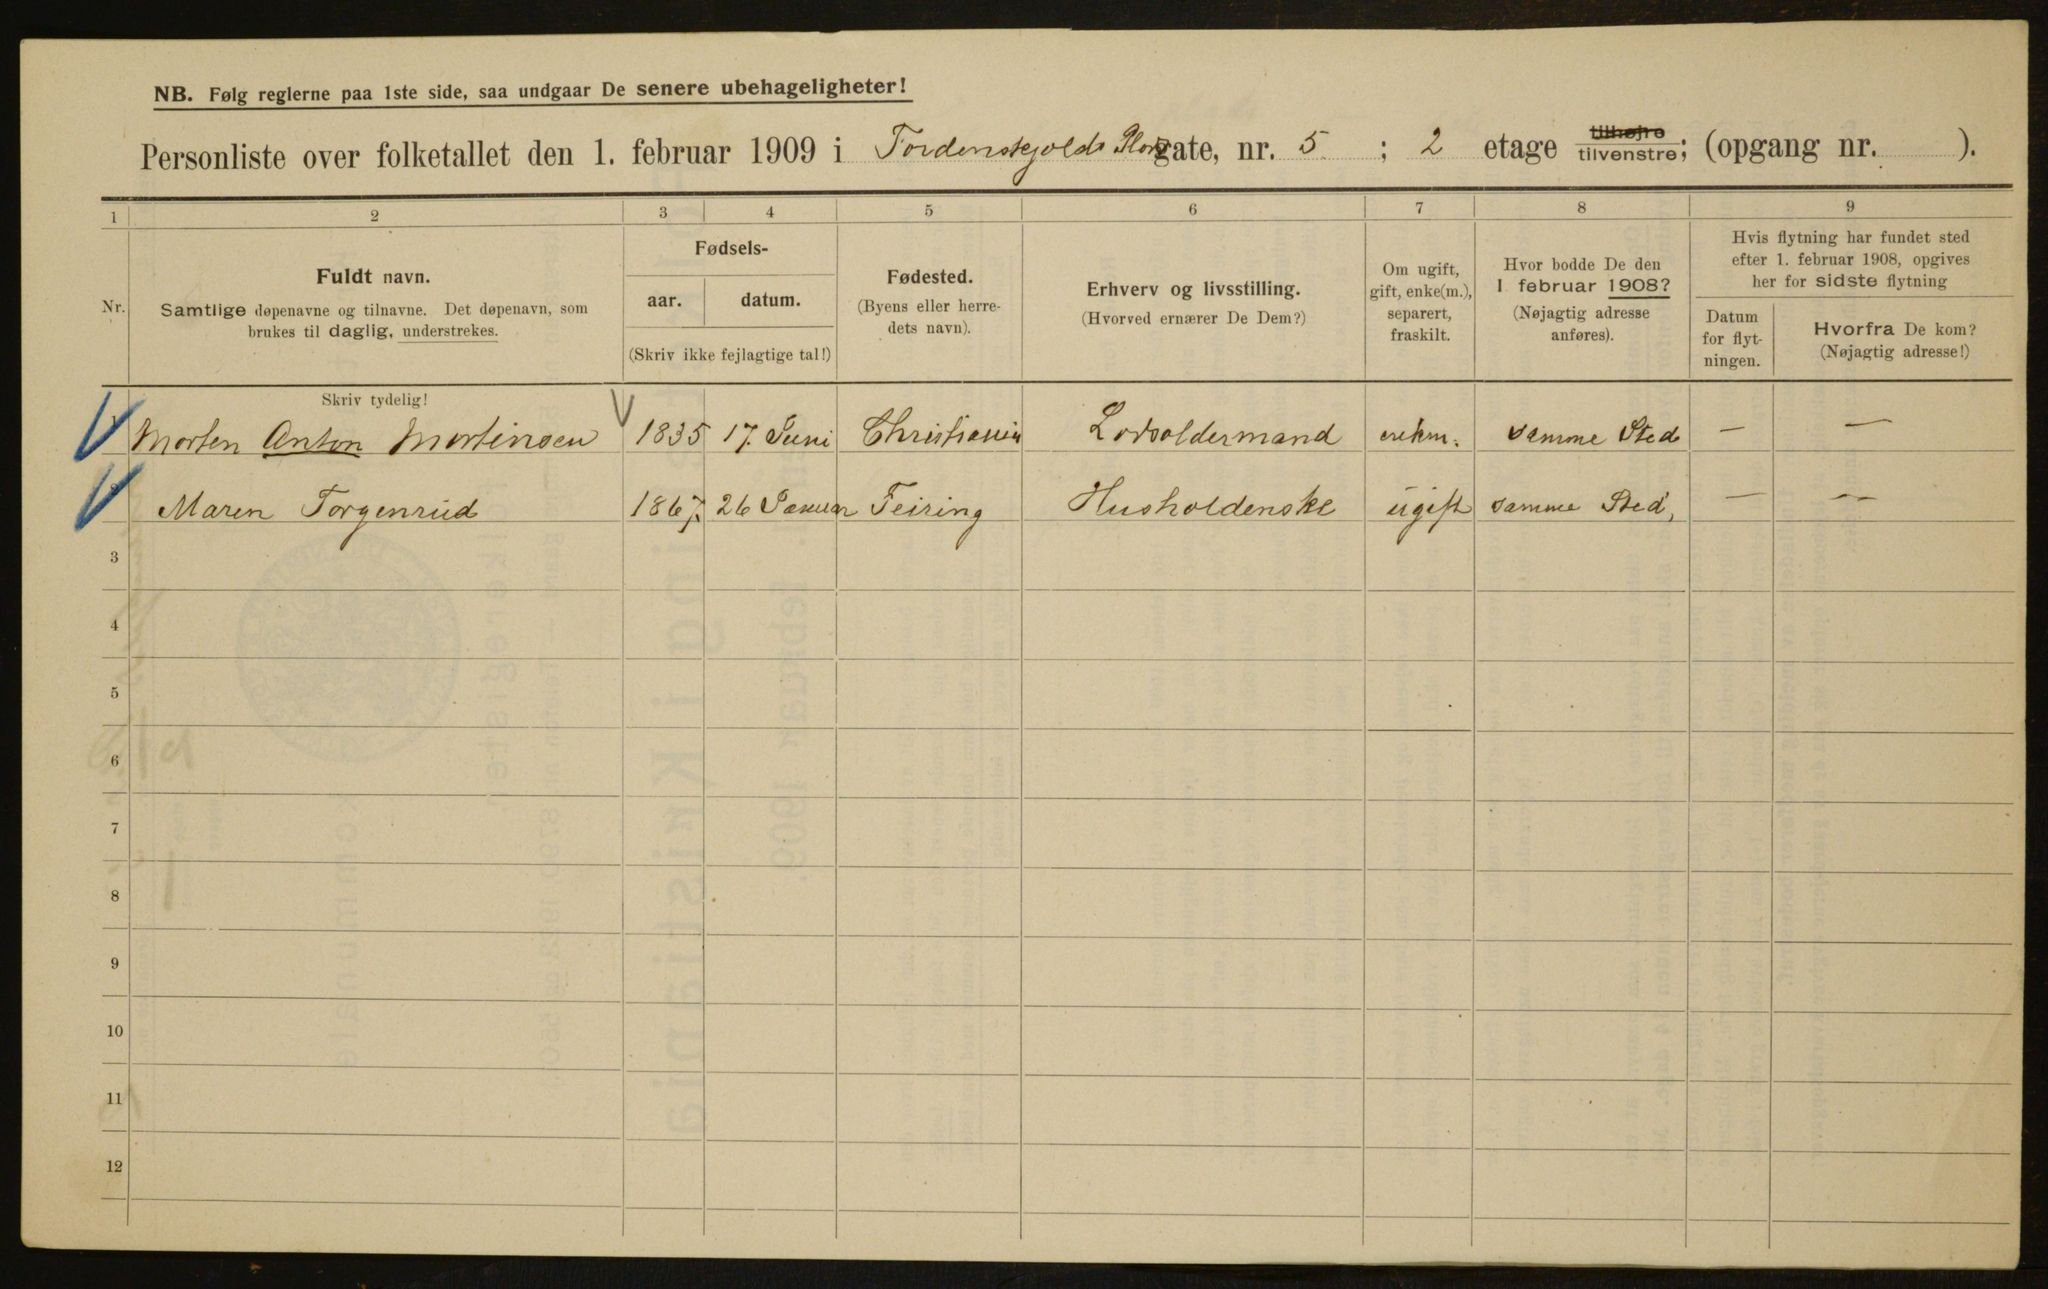 NB. Følg reglerne paa 1ste side, saa undgaar De senere ubehageligheter!
Personliste over folketallet den 1. februar 1909 i Tordenskjolds Plads gate, nr. 5 ; 2 etage tilhøjre tilvenstre; (opgang nr. ).
1 2 3 4 5 6 7 8 9
Nr.
Fuldt navn.
Samtlige døpenavne og tilnavne. Det døpenavn, som
brukes til daglig, understrekes.
Fødsels-
aar. datum.
(Skriv ikke fejlagtige tal!)
Fødested.
(Byens eller herre-
dets navn).
Erhverv og livsstilling.
(Hvorved ernærer De Dem?)
Om ugift,
gift, enke(m.),
separert,
fraskilt.
Hvor bodde De den
1 februar 1908?
(Nøjagtig adresse
anføres).
Hvis flytning har fundet sted
efter 1. februar 1908, opgives
her for sidste flytning
Datum
for flyt-
ningen.
Hvorfra De kom?
(Nøjagtig adresse!)
Skriv tydelig!
1 Morten Anton Mortinsen 1835 17. Juni Christiania Lodsoldermand enkm. samme Sted — —
2 Maren Torgenrud 1867. 26 Januar Feiring Husholdenske ugift samme Sted, — —
3
4
5
6
7
8
9
10
11
12